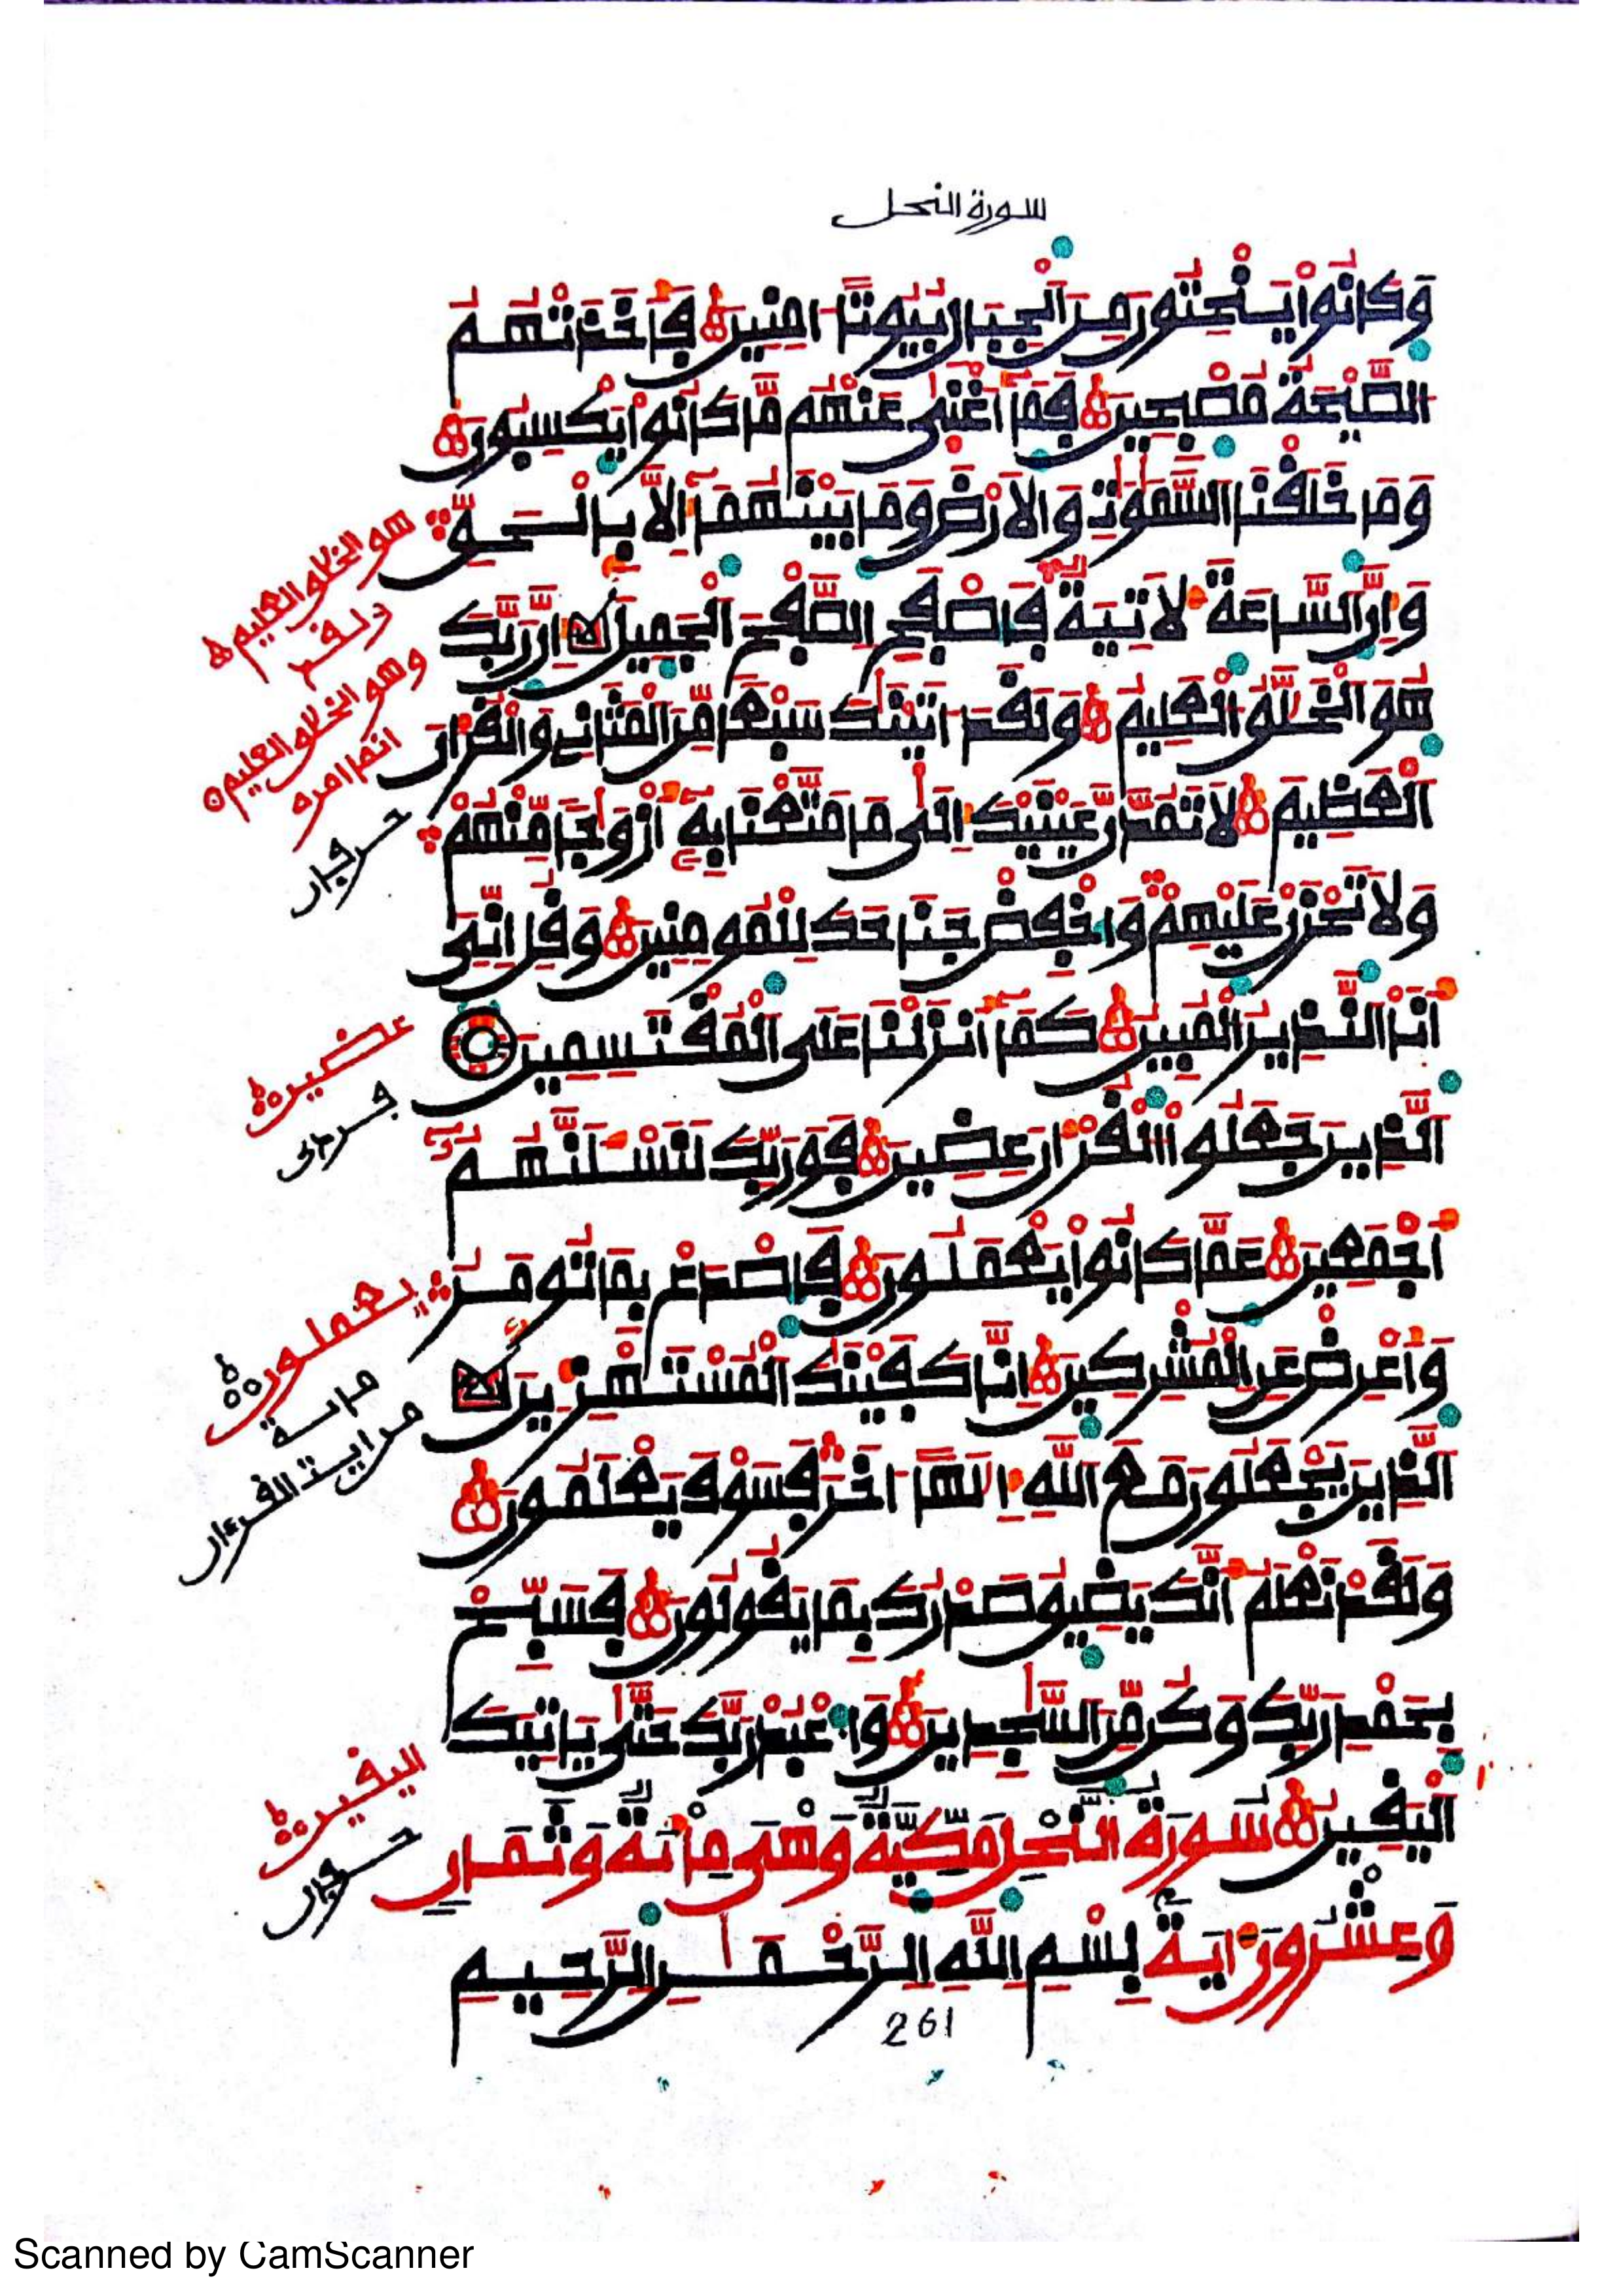 سورة النحل
وَكَانُواْ يَنْحِتُونَ مِنَ ٱلْجِبَالِ بُيُوتًا ـامِنِينَ فَأَخَذَتْهُمُ
ٱلصَّيْحَةُ مُصْبِحِينَ فَمَآ أَغْنَىٰ عَنْهُم مَّا كَانُواْ يَكْسِبُونَ
وَمَا خَلَقْنَا ٱلسَّمَٰوَٰتِ وَٱلَارْضَ وَمَا بَيْنَهُمَآ إِلَّا بِالْحَقِّ
وَإِنَّ ٱلسَّاعَةَ لَأتِيَةٌ فَاصْفَحِ ٱلصَّفْحَ ٱلْجَمِيلَ إِنَّ رَبَّكَ
هُوَ ٱلْخَلَّٰقُ ٱلْعَلِيمُ وَلَقَدَ ـاتَيْنَٰكَ سَبْعًا مِّنَ ٱلْمَثَانِي وَٱلْقُرْءَانَ
ٱلْعَظِيمَ لَا تَمُدَّنَّ عَيْنَيْكَ إِلَىٰ مَا مَتَّعْنَا بِهِۦٓ أَزْوَٰجًا مِّنْهُمْ
وَلَا تَحْزَنْ عَلَيْهِمْ وَاخْفِضْ جَنَاحَكَ لِلْمُومِنِينَ وَقُلِ انِّيَ
أَنَا ٱلنَّذِيرُ ٱلْمُبِينُ كَمَآ أَنزَلْنَا عَلَى ٱلْمُقْتَسِمِينَ
ٱلَّذِينَ جَعَلُواْ ٱلْقُرْءَانَ عِضِينَ فَوَرَبِّكَ لَنَسْـَٔلَنَّهُمُۥٓ
أَجْمَعِينَ عَمَّا كَانُواْ يَعْمَلُونَ فَاصْدَعْ بِمَا تُومَرُ
وَأَعْرِضْ عَنِ ٱلْمُشْرِكِينَ إِنَّا كَفَيْنَٰكَ ٱلْمُسْتَهْزِءِينَ
ٱلَّذِينَ يَجْعَلُونَ مَعَ ٱللَّهِ إِلَٰهًا ـاخَرَ فَسَوْفَ يَعْلَمُونَ
وَلَقَدْ نَعْلَمُ أَنَّكَ يَضِيقُ صَدْرُكَ بِمَا يَقُولُونَ فَسَبِّحْ
بِحَمْدِ رَبِّكَ وَكُن مِّنَ ٱلسَّٰجِدِينَ وَاعْبُدْ رَبَّكَ حَتَّىٰ يَاتِيَكَ
ٱلْيَقِينُ سُورَةُ ٱلنَّحْلِ مَكِّيَّةٌ وَهْىَ مِائَةٌ وَثَمَانِ
وَعِشْرُونَ ءَايَةً بِسْمِ ٱللَّهِ ٱلرَّحْمَٰنِ ٱلرَّحِيمِ
هو الخلاق العليم
ولقد
وهو الخلاق العليم
انما امره
عضين
يعملون
اليقين
261
Scanned by CamScanner